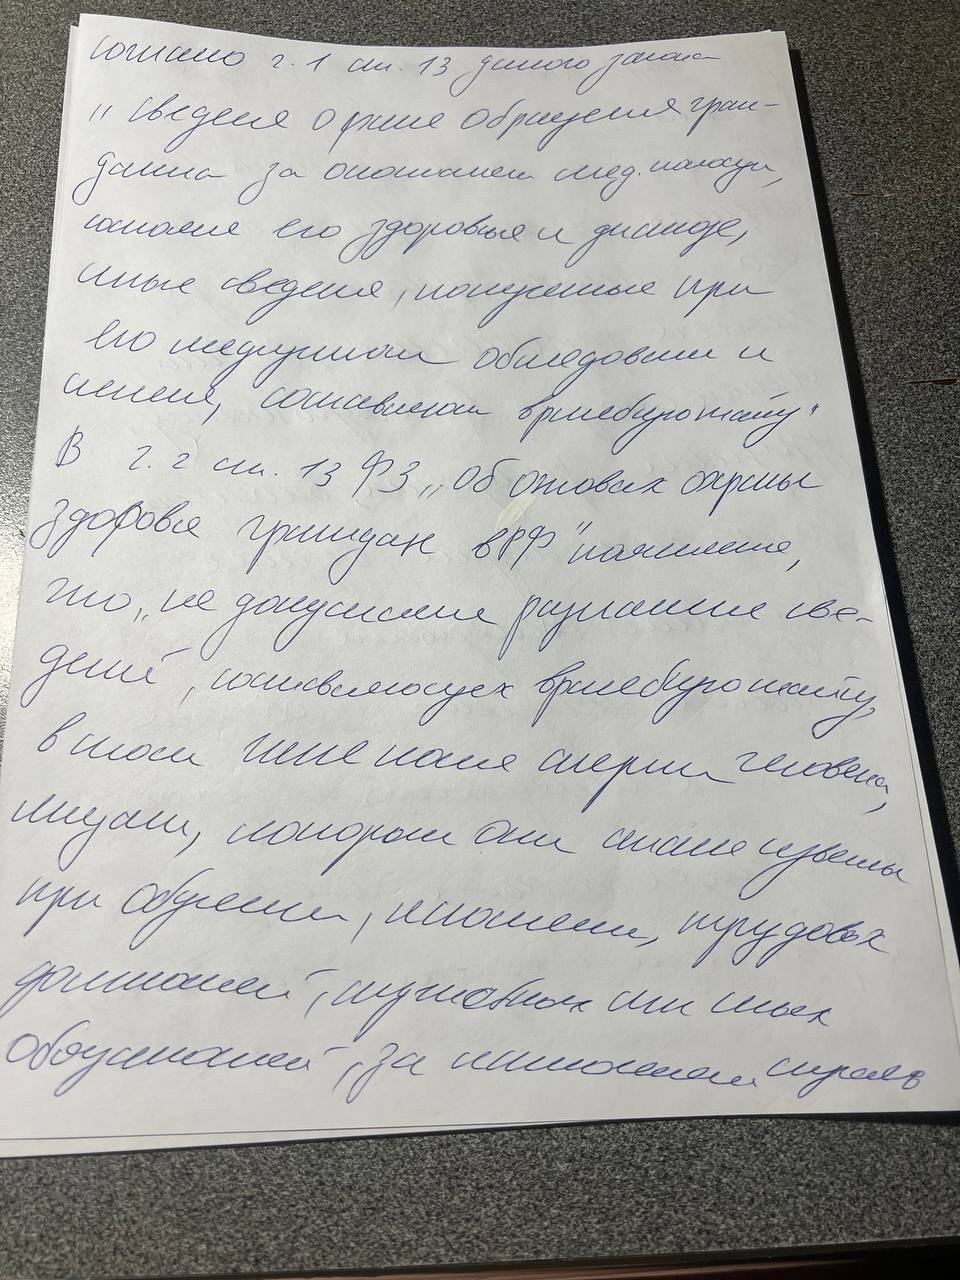 согласно ч. 1 ст. 13 данного закона
„ сведения о факте обращения граж-
данина за оказанием мед. помощи,
состояние его здоровья и диагнозе,
иные сведения, полученные при
его медицинском обследовании и
лечении, составляют врачебную тайну"
В ч. 2 ст. 13 ФЗ „Об основах охраны
здоровья граждан в РФ" пояснение,
что „не допускается разглашение све-
дений, составляющих врачебную тайну,
в том числе после смерти человека,
лицами, которым они стали известны
при обучении, исполнении, трудовых
должностей, служебных или иных
обязанностей, за исключением случаев